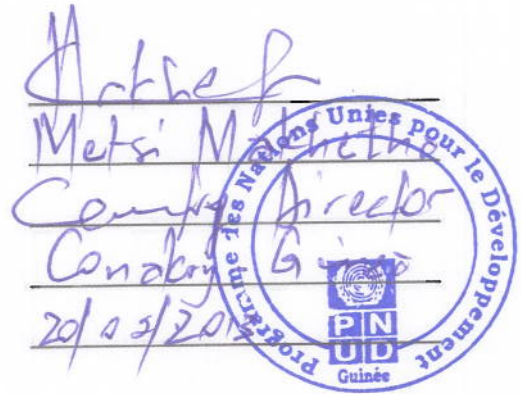 Metsi Makhetha
Country Director
Conakry Guinée
Programme des Nations Unies pour le Développement
PN
UD
Guinée